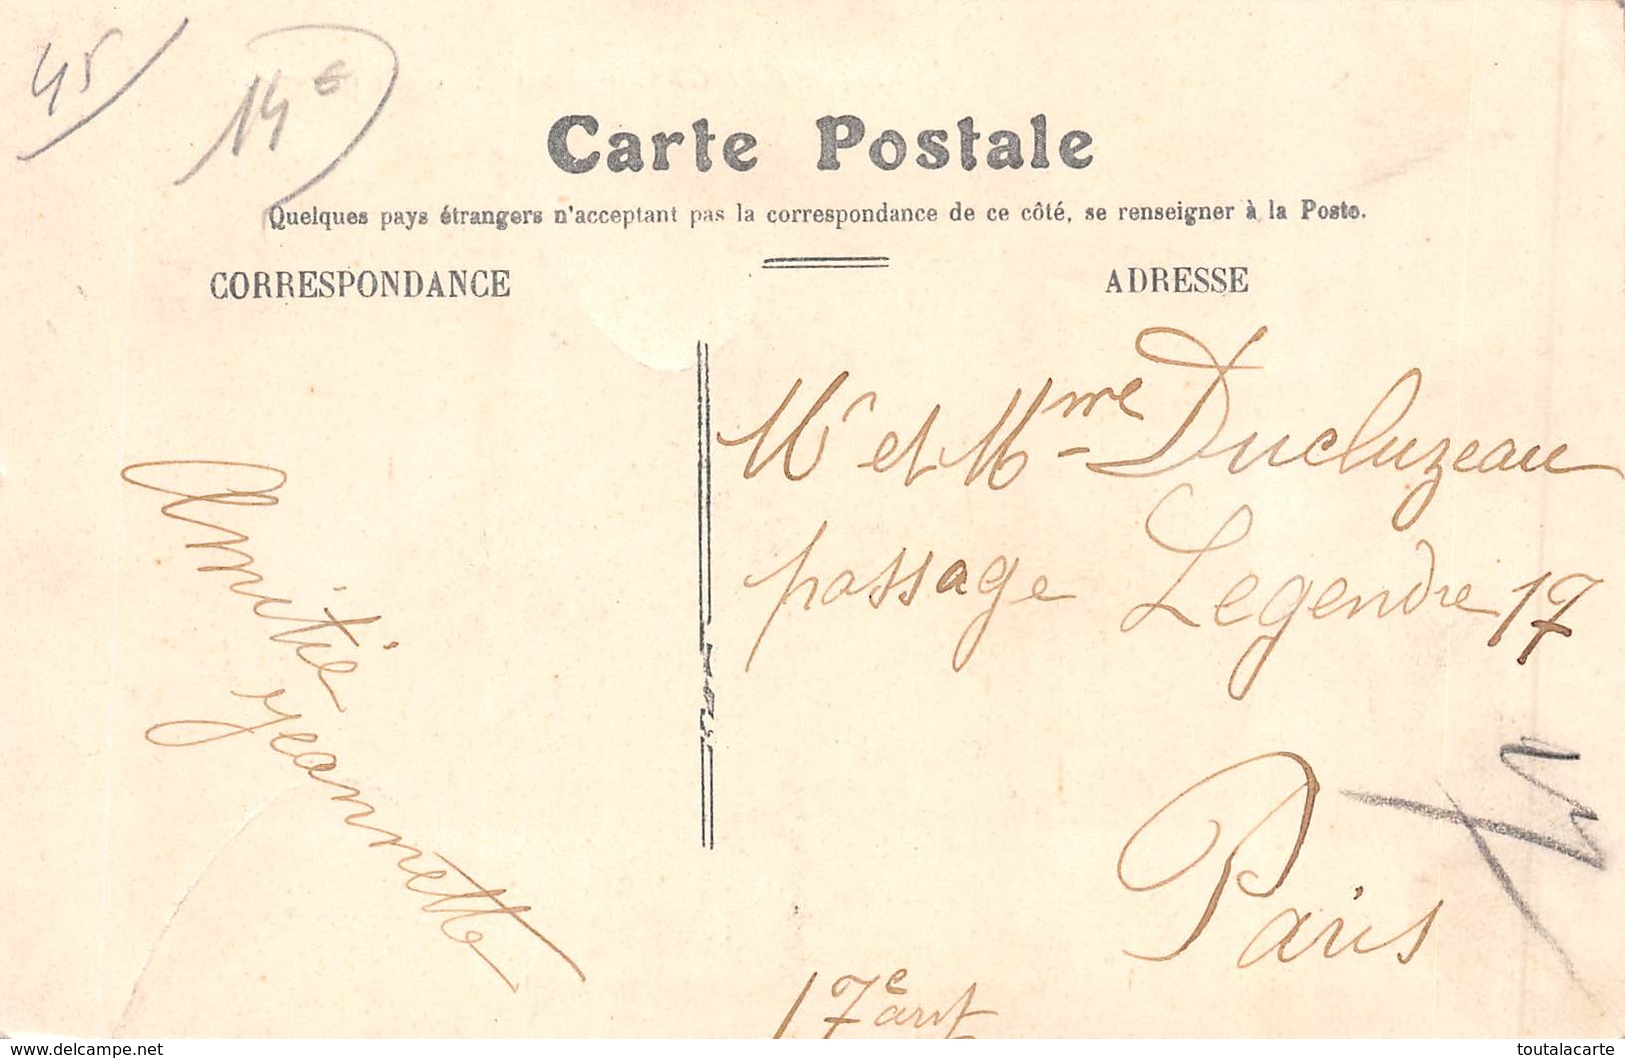 45
14€
Carte Postale
Quelques pays étrangers n'acceptant pas la correspondance de ce côté, se renseigner à la Poste.
CORRESPONDANCE
ADRESSE
Amitié
Jeannette
Mr et Mme Ducluzeau
passage Legendre 17
Paris
17e arrt
www.delcampe.net
toutalacarte